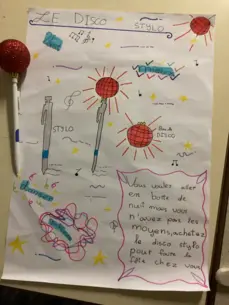 LE DISCO
STYLO
STYLO
Boule
DISCO
Vous voulez aller
en boite de
nuit mais vous
n'avez pas les
moyens, achetez
le disco stylo
pour faire la
fête chez vous